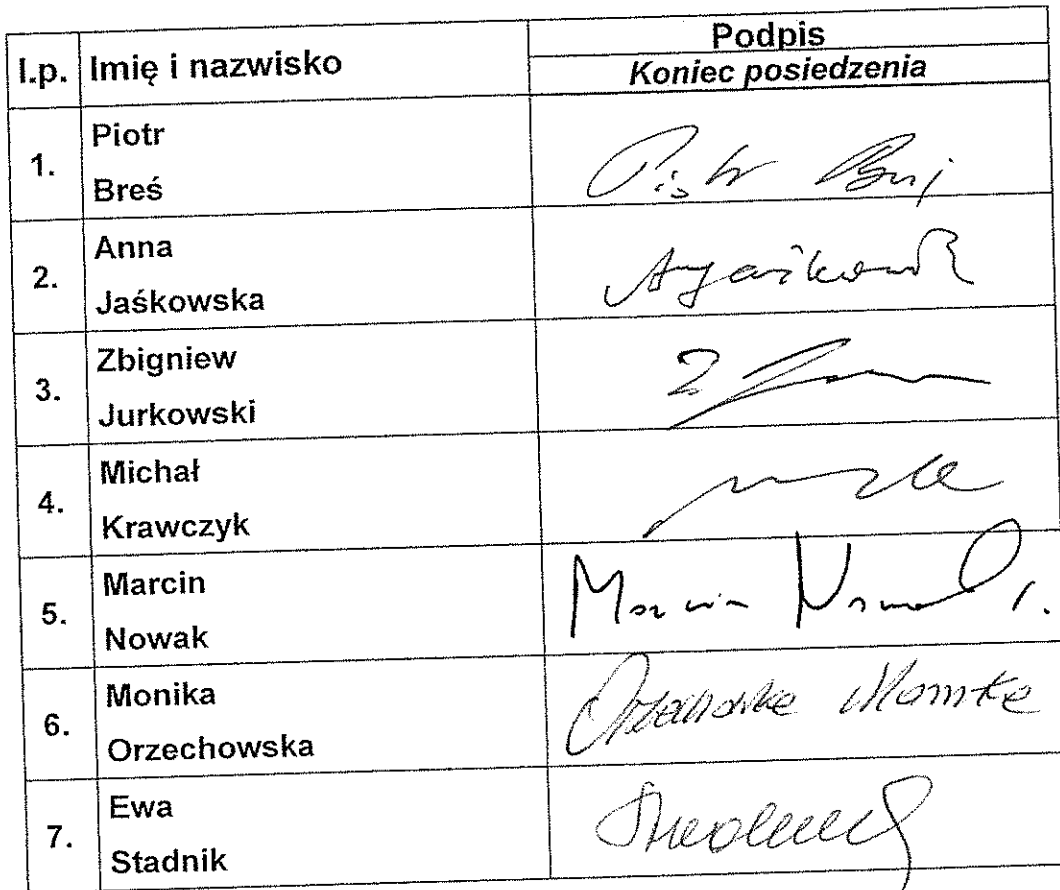 l.p. Imię i nazwisko Podpis
Koniec posiedzenia
1. Piotr
Breś
Piotr Breś
2. Anna
Jaśkowska
AJaśkowsk
3. Zbigniew
Jurkowski
Z
4. Michał
Krawczyk
5. Marcin
Nowak
Marcin Nowak
6. Monika
Orzechowska
Orzechowska Monika
7. Ewa
Stadnik